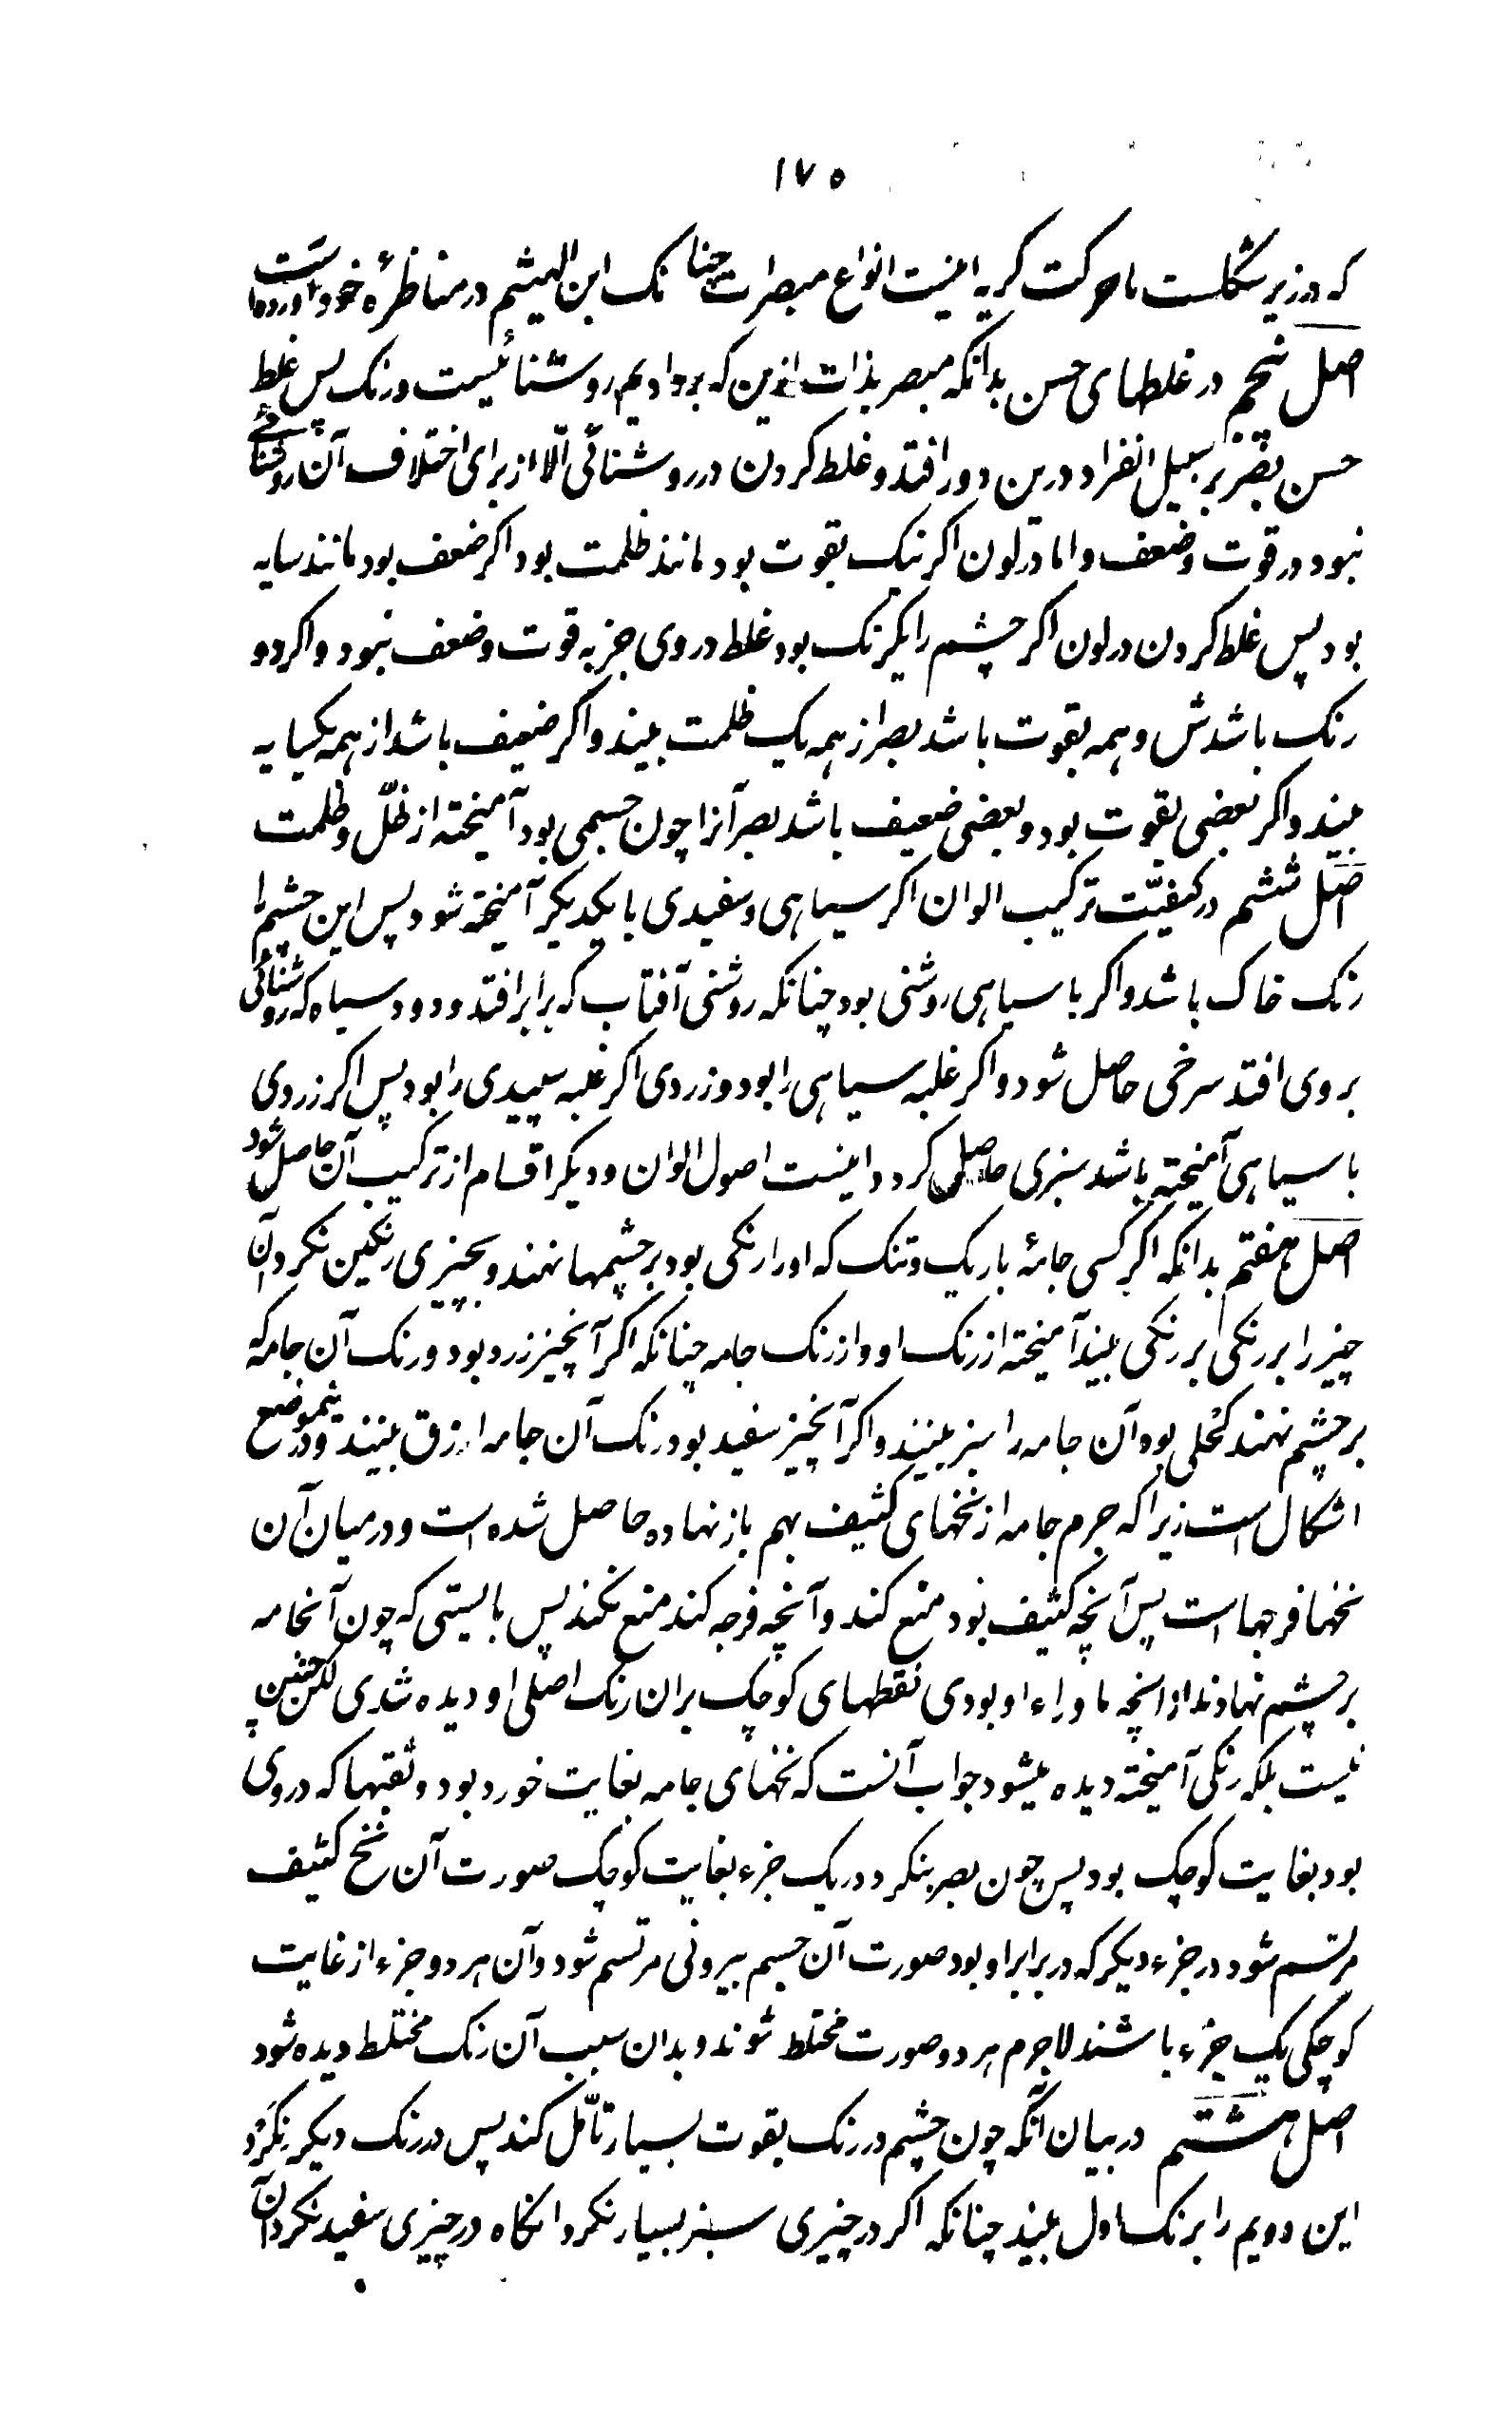 ۱۷۵
که در زیر شکلست یا حرکت کریه اینست انواع مبصرات چنانک ابن الهیثم در مناظرهٔ خود آورده است
اصل پنجم در غلطهای حسن بدانکه مبصر بذات ازین که بردادیم روشنائیست ورنک پس غلط
حسن بصر بر سبیل انفراد درین دو افتد و غلط کردن در روشنائی الّا از برای اختلاف آن روشنائی
نبود در قوت وضعف واما در لون اکر نیک بقوت بود مانند ظلمت بود اکر ضعف بود مانند سایه
بود پس غلط کردن در لون اکر چشم را یکرنک بود غلط در وی جز به قوت وضعف نبود واکر دو
رنک باشدش وهمه بقوت باشد بصر از همه یک ظلمت بیند واکر ضعیف باشد از همه یکسایه
بیند واکر بعضی بقوت بود وبعضی ضعیف باشد بصر آنرا چون جسمی بود آمیخته از ظلّ وظلمت
اصل ششم در کیفیّت ترکیب الوان اکر سیاهی وسفیدی با یکدیکر آمیخته شود پس این چشم را
رنک خاک باشد واکر با سیاهی روشنی بود چنانکه روشنی آفتاب که برابر افتد ودود سیاه که روشنائی
بروی افتد سرخی حاصل شود واکر غلبه سیاهی را بود وزردی اکر غلبه سپیدی را بود پس اکر زردی
با سیاهی آمیخته باشد سبزی حاصل کردد اینست اصول الوان ودیکر اقسام از ترکیب آن حاصل شود
اصل هفتم بدانکه اکر کسی جامهٔ باریک وتنک که اورا رنکی بود بر چشمها نهند وبچیزی رنکین نکرد آن
چیز را بر رنکی بر رنکی بیند آمیخته از رنک او واز رنک جامه چنانکه اکر آنچیز زرد بود ورنک آن جامه که
بر چشم نهند کحلی بود آن جامه را سبز بینند واکر آنچیز سفید بود رنک آن جامه ازرق بینند ودرینموضع
اشکال است زیرا که جرم جامه از نخهای کثیف بهم باز نهاده حاصل شده است ودر میان آن
نخها فرجها است پس آنچه کثیف بود منع کند وآنچه فرجه کند منع نکند پس بایستی که چون آنجامه
بر چشم نهادند از انچه ماوراء او بودی نقطهای کوچک بران رنک اصلی او دیده شدی لکن چنین
نیست بلکه رنکی آمیخته دیده میشود جواب آنست که نخهای جامه بغایت خورد بود وثقبها که در وی
بود بغایت کوچک بود پس چون بصر بنکرد در یک جزء بغایت کوچک صورت آن نخ کثیف
مرتسم شود در جزء دیکر که در برابر او بود صورت آن جسم بیرونی مرتسم شود وآن هر دو جزء از غایت
کوچکی یک جزء باشند لاجرم هر دو صورت مختلط شوند وبدان سبب آن رنک مختلط دیده شود
اصل هشتم در بیان آنکه چون چشم در رنک بقوت بسیار تأمّل کند پس در رنک دیکر نکرد
این دویم را برنک اول بیند چنانکه اکر در چیزی سبز بسیار نکرد انکاه در چیزی سفید نکرد آن